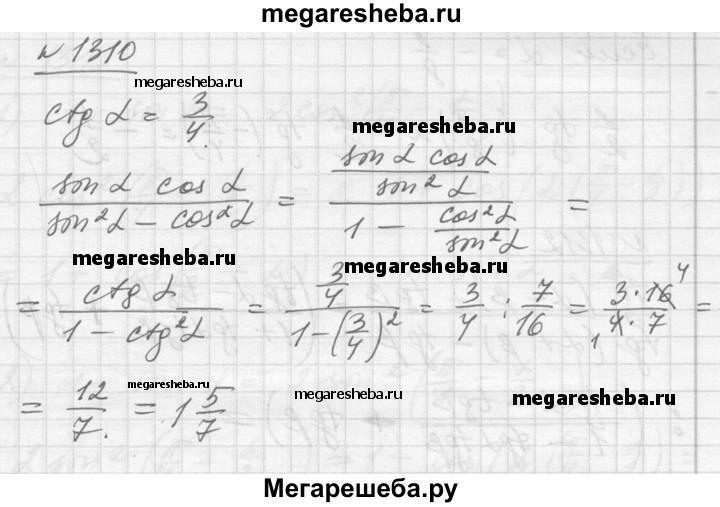 megaresheba.ru
№ 1310
megaresheba.ru
ctg α = 3/4.
megaresheba.ru
(sin α cos α)/(sin²α − cos²α) = ((sin α cos α)/(sin² α))/(1 − (cos²α)/(sin²α)) =
megaresheba.ru megaresheba.ru
= (ctg α)/(1 − ctg²α) = (3/4)/(1 − (3/4)²) = 3/4 : 7/16 = (3 · 16 4)/(1 4 · 7) =
megaresheba.ru megaresheba.ru megaresheba.ru
= 12/7. = 1 5/7
Мегарешеба.ру